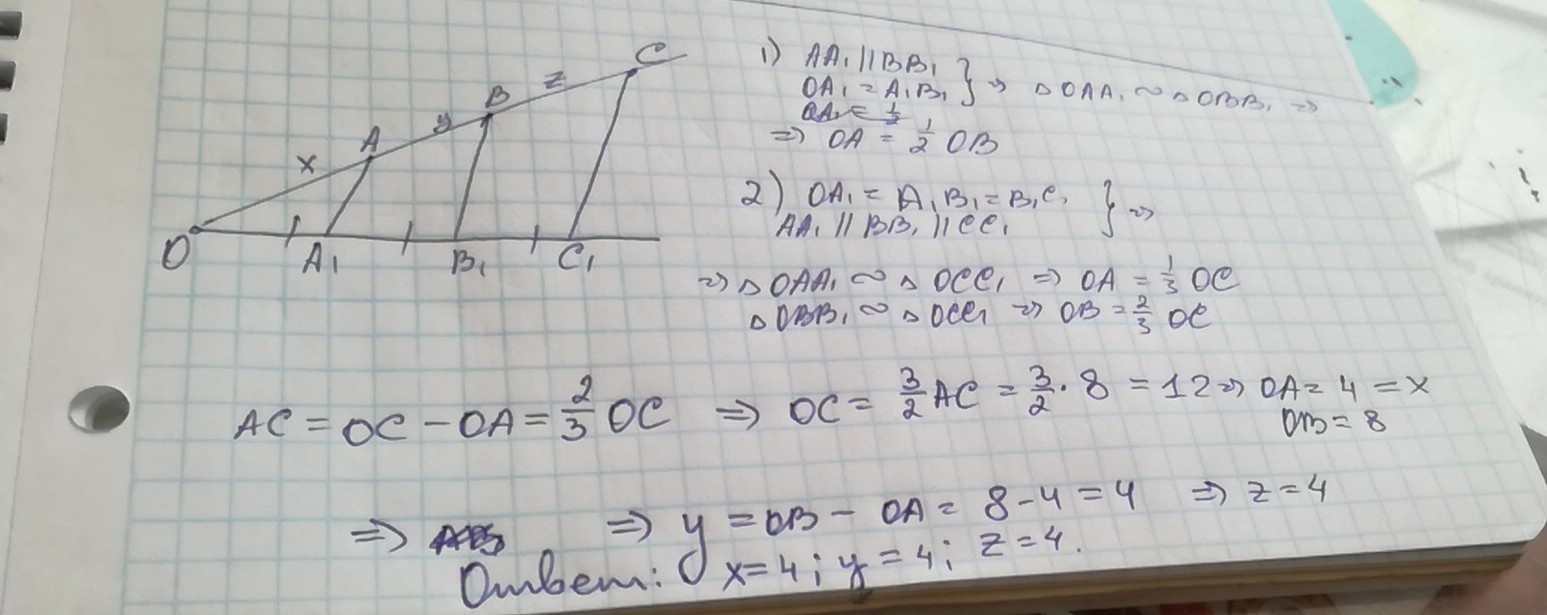 C
z
B
y
A
x
O
A₁
B₁
C₁
1) AA₁ || BB₁
OA₁ = A₁B₁ } ⇒ △OAA₁ ∾ △OBB₁ ⇒
⇒ OA = 1/2 OB
2) OA₁ = A₁B₁ = B₁C₁
AA₁ || BB₁ || CC₁ } ⇒
⇒ △OAA₁ ∾ △OCC₁ ⇒ OA = 1/3 OC
△OBB₁ ∾ △OCC₁ ⇒ OB = 2/3 OC
AC = OC − OA = 2/3 OC ⇒ OC = 3/2 AC = 3/2 · 8 = 12 ⇒ OA = 4 = x
OB = 8
⇒ ⇒ y = OB − OA = 8 − 4 = 4 ⇒ z = 4
Ответ: x = 4; y = 4; z = 4.